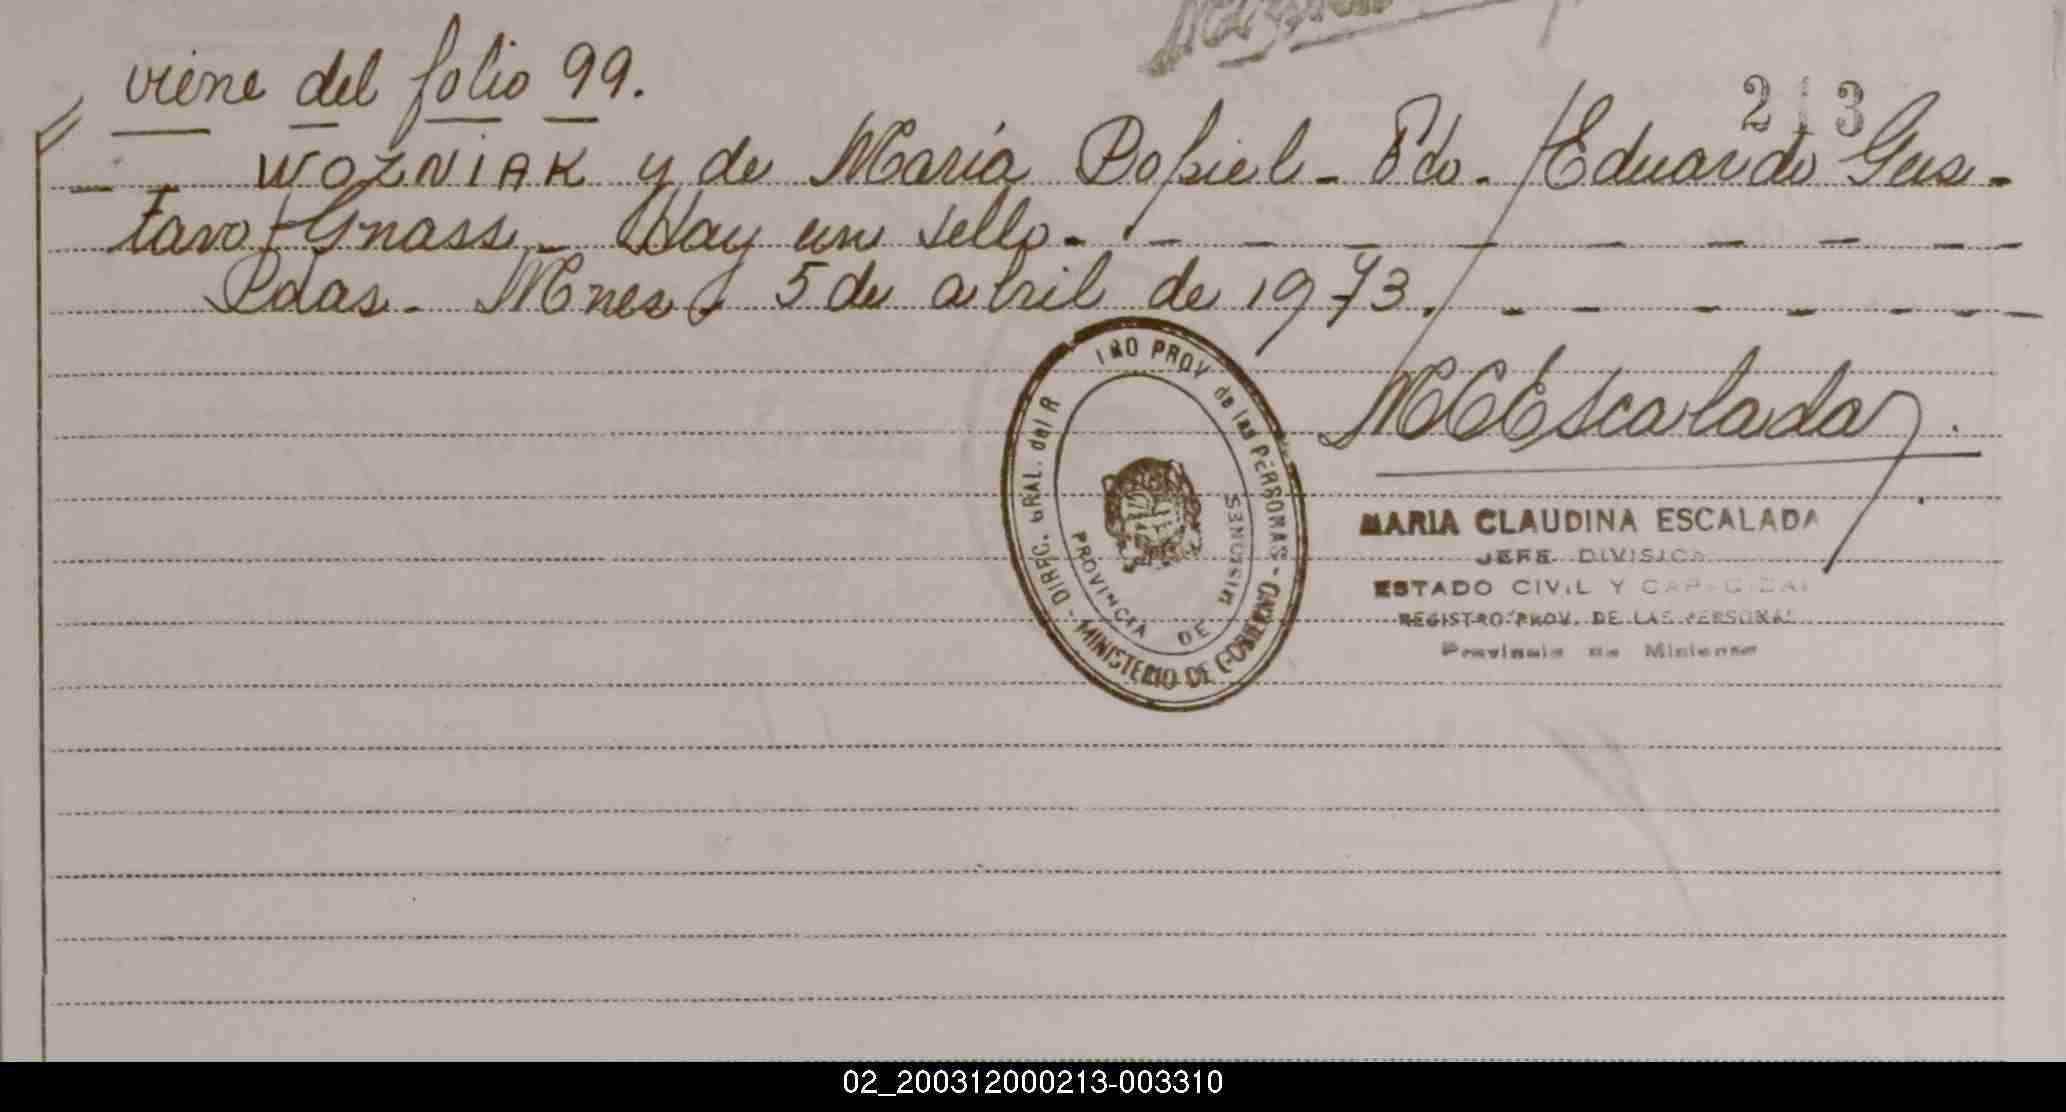 viene del folio 99.
213
WOZNIAK y de María Popiel - Fdo. Eduardo Gus-
tavo Gnass - Hay un sello. -
Pdas. Mnes, 5 de abril de 1973.
MCEscalada
DIREC. GRAL. del R PROV de las PERSONAS - MINISTERIO DE GOBIERNO
PROVINCIA DE MISIONES
MARIA CLAUDINA ESCALADA
JEFE DIVISION
ESTADO CIVIL Y CAPACIDAD
REGISTRO PROV. DE LAS PERSONAS
Provincia de Misiones
02_200312000213-003310